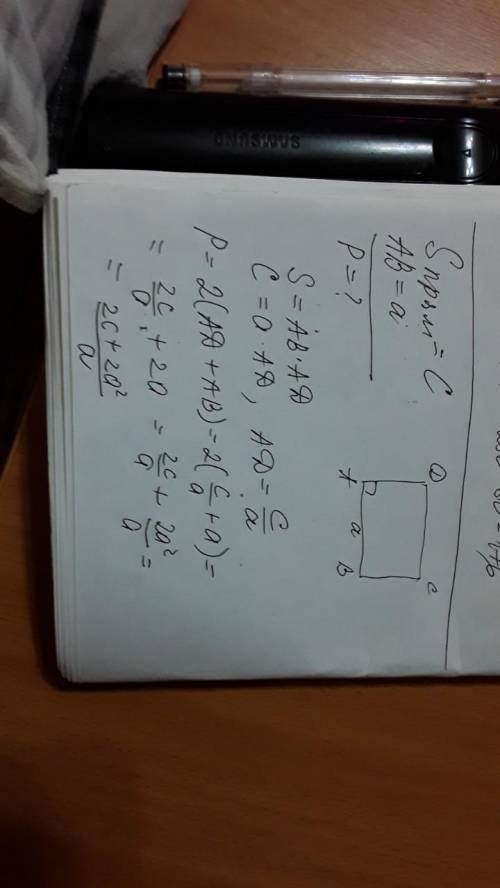 SAMSUNG
Sпрям = C
AB = a
P = ?
D
C
A
a
B
S = AB · AD
C = a · AD, AD = C/a
P = 2(AD + AB) = 2(C/a + a) =
= 2C/a + 2a = 2C/a + 2a²/a =
= 2C + 2a²/a